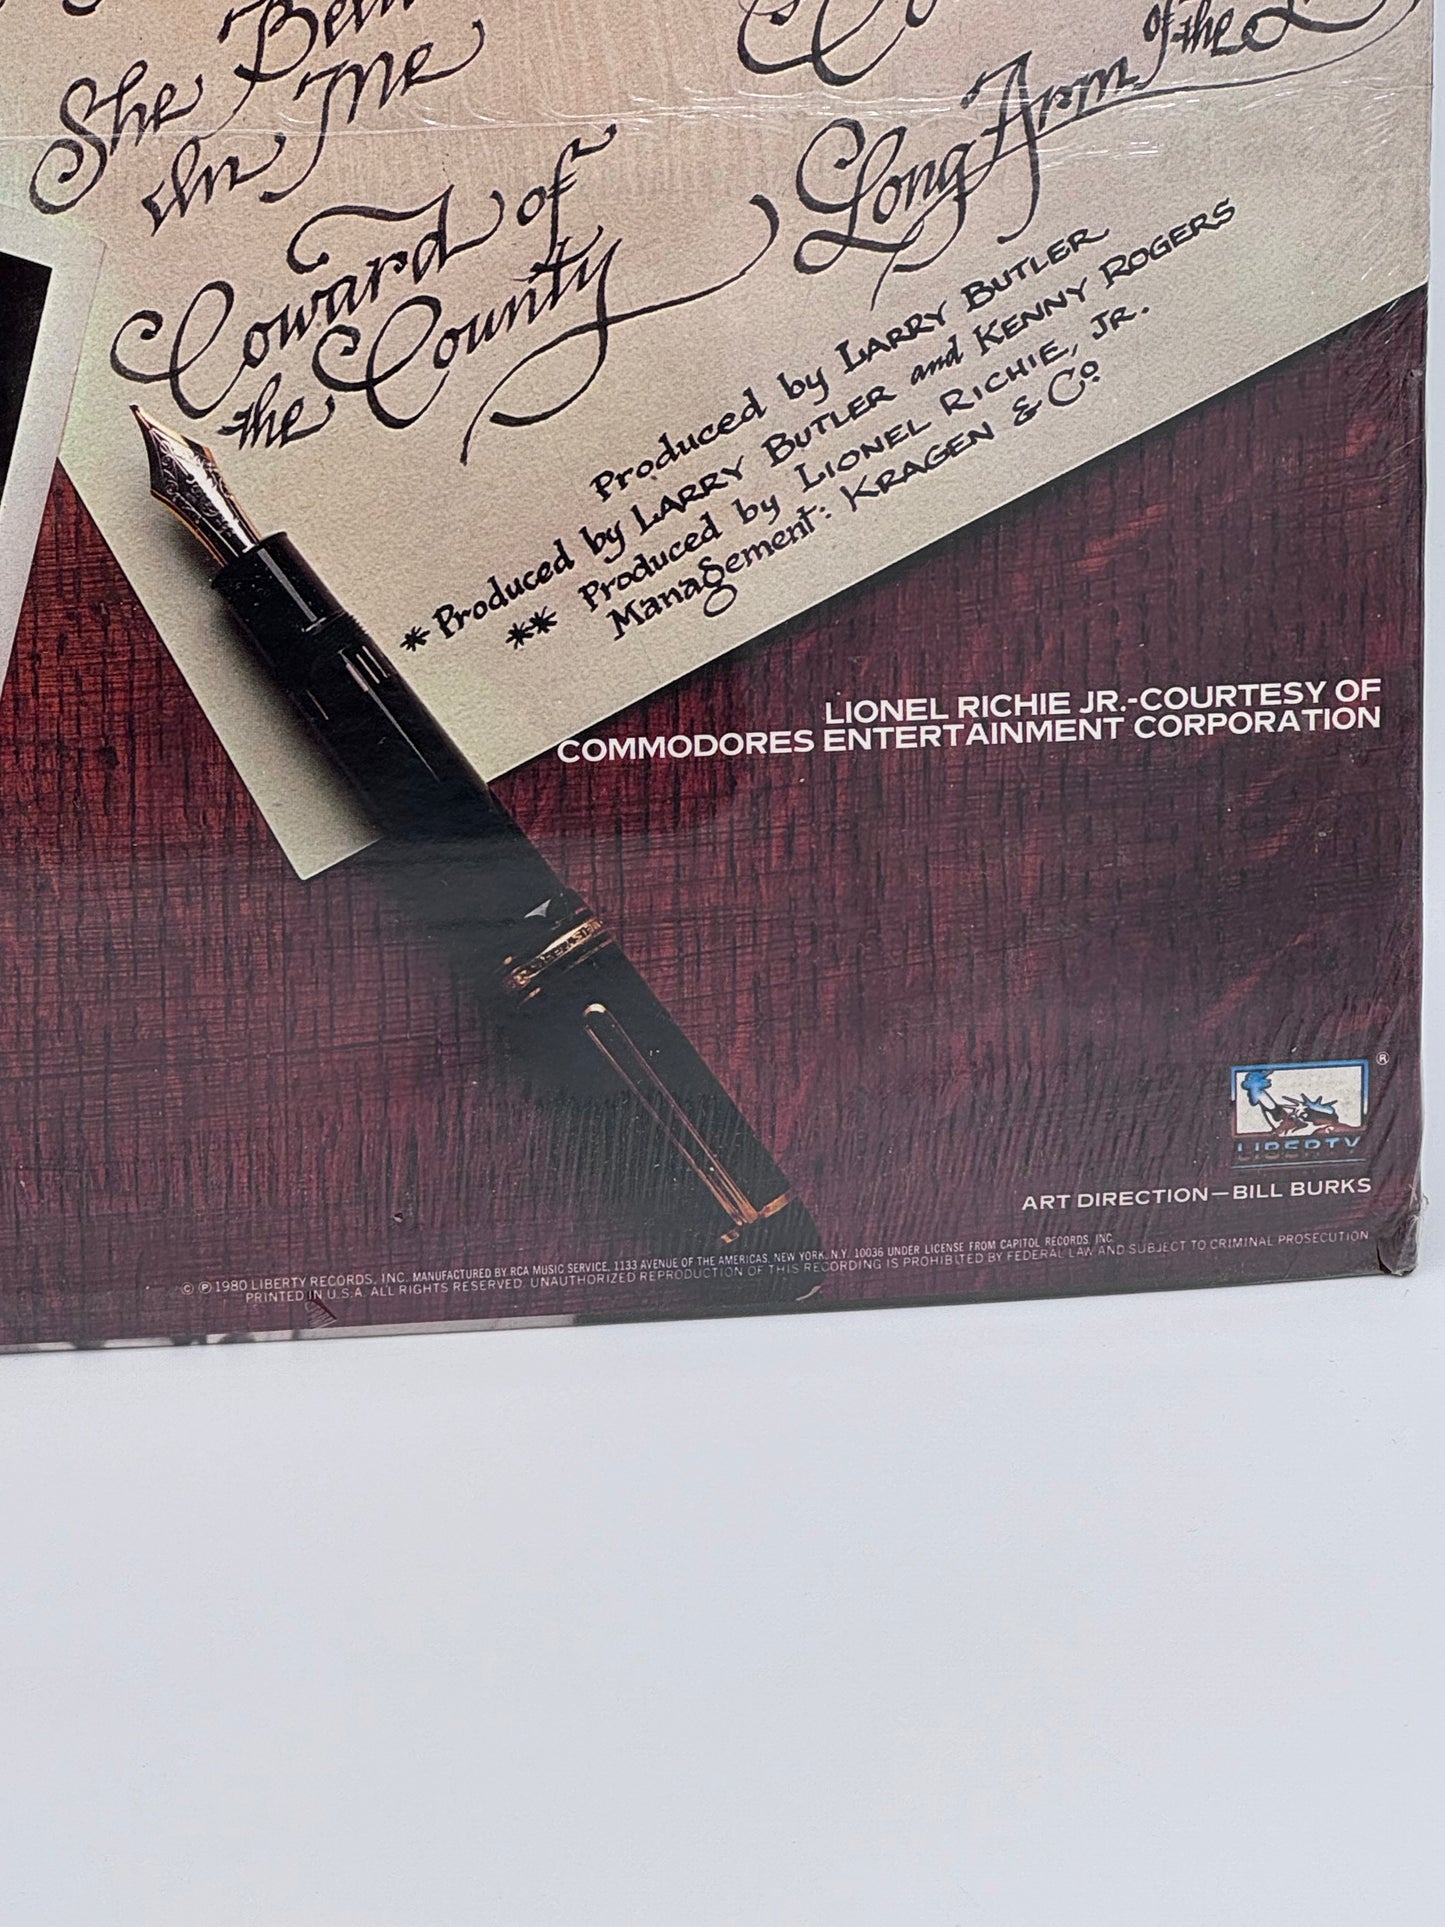 She
In Me
Coward of
the County
Long Arm
of the
Produced by LARRY BUTLER
* Produced by LARRY BUTLER and KENNY ROGERS
** Produced by LIONEL RICHIE, JR.
Management: KRAGEN & Co
LIONEL RICHIE JR.-COURTESY OF
COMMODORES ENTERTAINMENT CORPORATION
®
LIBERTY
ART DIRECTION—BILL BURKS
© ℗ 1980 LIBERTY RECORDS, INC. MANUFACTURED BY RCA MUSIC SERVICE, 1133 AVENUE OF THE AMERICAS, NEW YORK, N.Y. 10036 UNDER LICENSE FROM CAPITOL RECORDS, INC.
PRINTED IN U.S.A. ALL RIGHTS RESERVED. UNAUTHORIZED REPRODUCTION OF THIS RECORDING IS PROHIBITED BY FEDERAL LAW AND SUBJECT TO CRIMINAL PROSECUTION